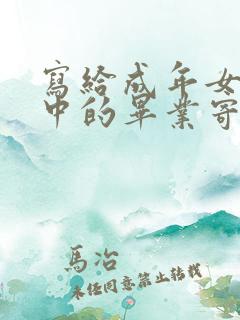 寫給成年女
中的畢業寄
馬冶
未經同意禁止轉載